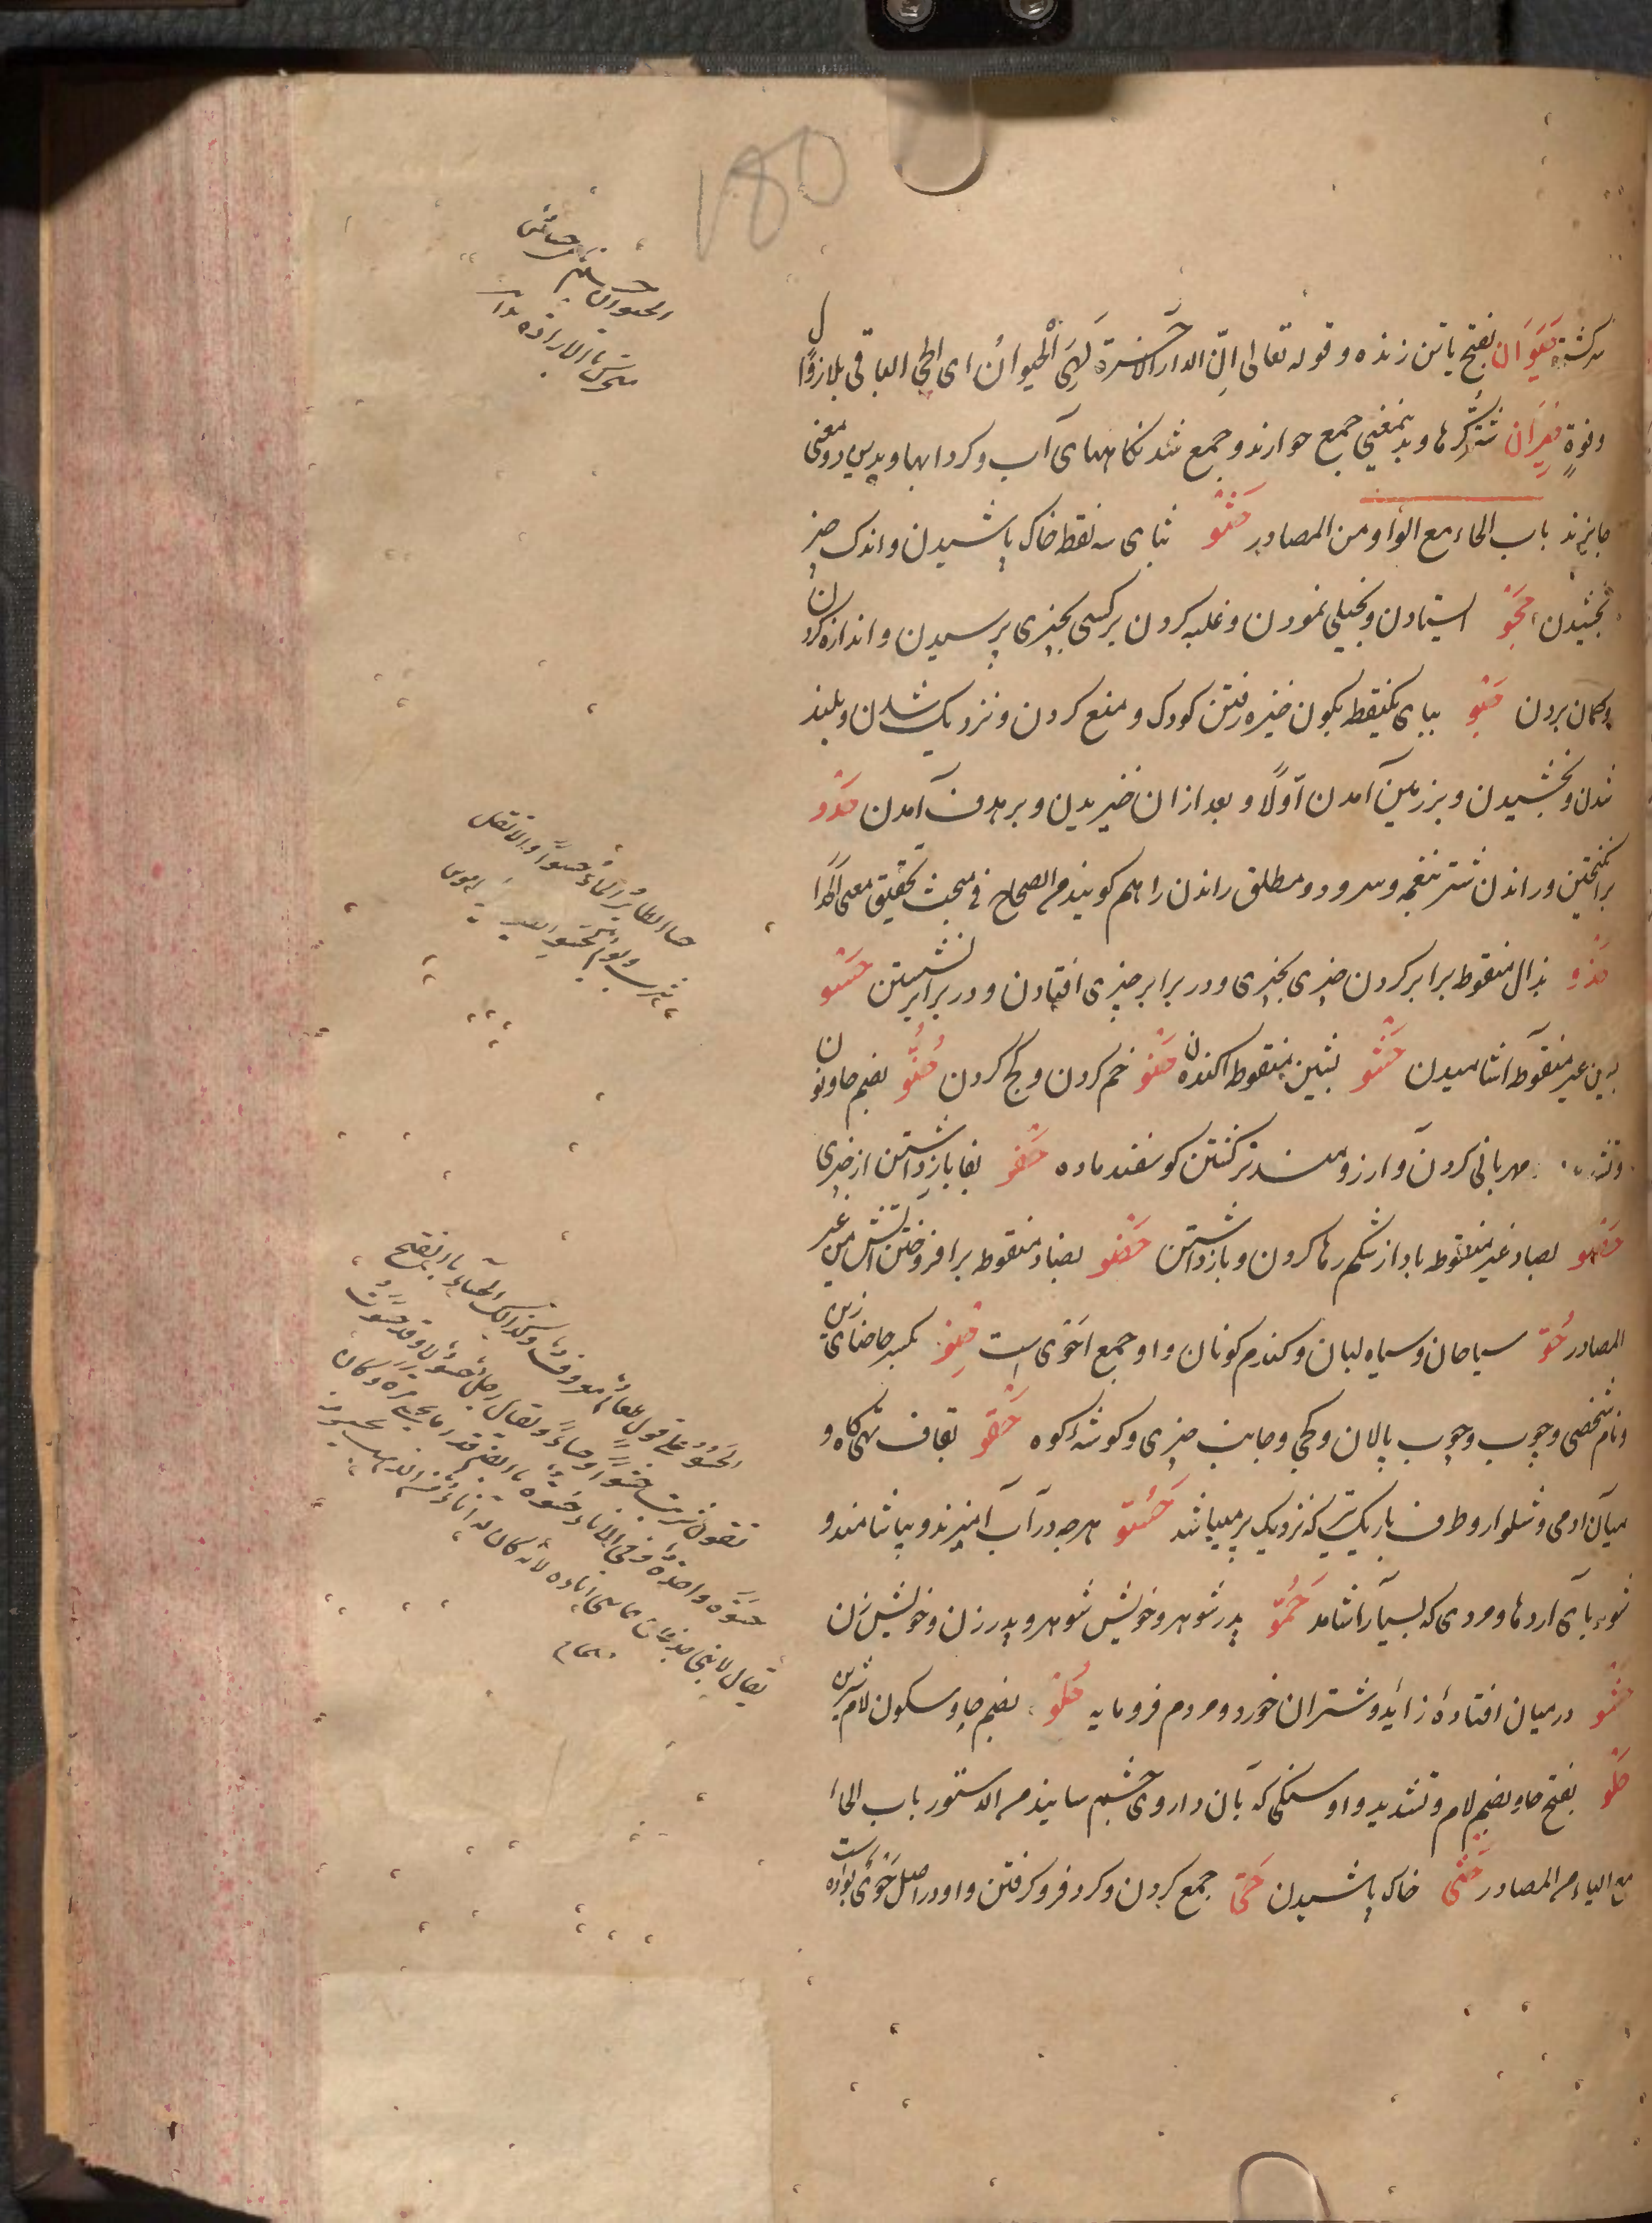 180
سرکشته حَیَوَان بفتح یا تن زنده و قوله تعالی اِنّ الدار الاخرة لَهِیَ الْحَیوانُ ای الحی الباقی بلا زوال
حِیرَان شتر کرها و بدینمعنی جمع حوارند و جمع شدنکاههای آب و کردابها و بدین دو معنی
جایزند باب الحاء مع الواو من المصادر حَثْو بثای سه نقطه خاک پاشیدن و اندک چیز
بخشیدن حَجْو استیادن و بخیلی نمودن و غلبه کردن بر کسی بچیزی پرسیدن و اندازه کردن
و کمان بردن حَبْو ببای یکنقطه بکون خیزه رفتن کودک و منع کردن و نزدیک شدن و بلند
شدن و بخشیدن و بر زمین آمدن اوّلًا و بعد ازان خیزیدن و بر هدف آمدن حَدْو
برانکیختن و راندن شتر بنغمه و سرود و مطلق راندن را هم کویند من الصحاح فی مبحث تحقیق معنی الحدا
حَذْو بذال منقوطه برابر کردن چیزی بچیزی و در برابر چیزی افتادن و در برابر نشستن حَسْو
بسین غیر منقوطه آشامیدن حَشْو بشین منقوطه اکندن حَنْو خم کردن و کج کردن حُنُوّ بضم حا و نون
مهربانی کردن و آرزومند نر کشتن کوسفند ماده حَفْو بفا بازداشتن از چیزی
حَصْو بصاد غیر منقوطه باد از شکم رها کردن و بازداشتن حَضْو بضاد منقوطه برافروختن آتش من غیر
المصادر حُوّ سیاهان و سیاه لبان و کندم کونان و او جمع احوی است حِنْو بکسر حا حنای زین
و نام شخصی و چوب و چوب پالان و کجی و جانب چیزی و کوشهٔ کوه حَقْو بقاف تهی کاه و
میان ادمی و شلوار و طرف باریک تیر که نزدیک پر میباشد حَسُوّ هرچه در آب آمیزند و بیاشامند و
شوربای آردها و مردی که بسیار آشامد حَمُو پدر شوهر و خویش شوهر و پدر زن و خویش زن
حَشْو در میان افتادهٔ زائد و شتران خورد و مردم فرومایه حُلْو بضم حا و سکون لام شیرین
حَلُو بفتح حا و بضم لام و تشدید واو سنکی که بآن داروی چشم سایند من الدستور باب الحاء
مع الیاء من المصادر حَثْی خاک پاشیدن حَیّ جمع کردن و کرد فروکرفتن و او در اصل حَوْی بواو است
الحیوان
متحرک بالاراده
حسا الطائر الماء حسوًا و لا تقل
شرب و یوم کحسو الطیر
الحَسُوّ علی فعول طعام معروف و کذلک الحساء بالفتح
تقول شربت حسوًا و حساءً و یقال رجل حَسُوّ
حَسْوَة واحدة و فی الاناء حُسوة بالضم قدر ما یحسی مرة و کان
یقال لابی جدعان حاسی الذهب لانه کان له اناء من الذهب یحسو منه